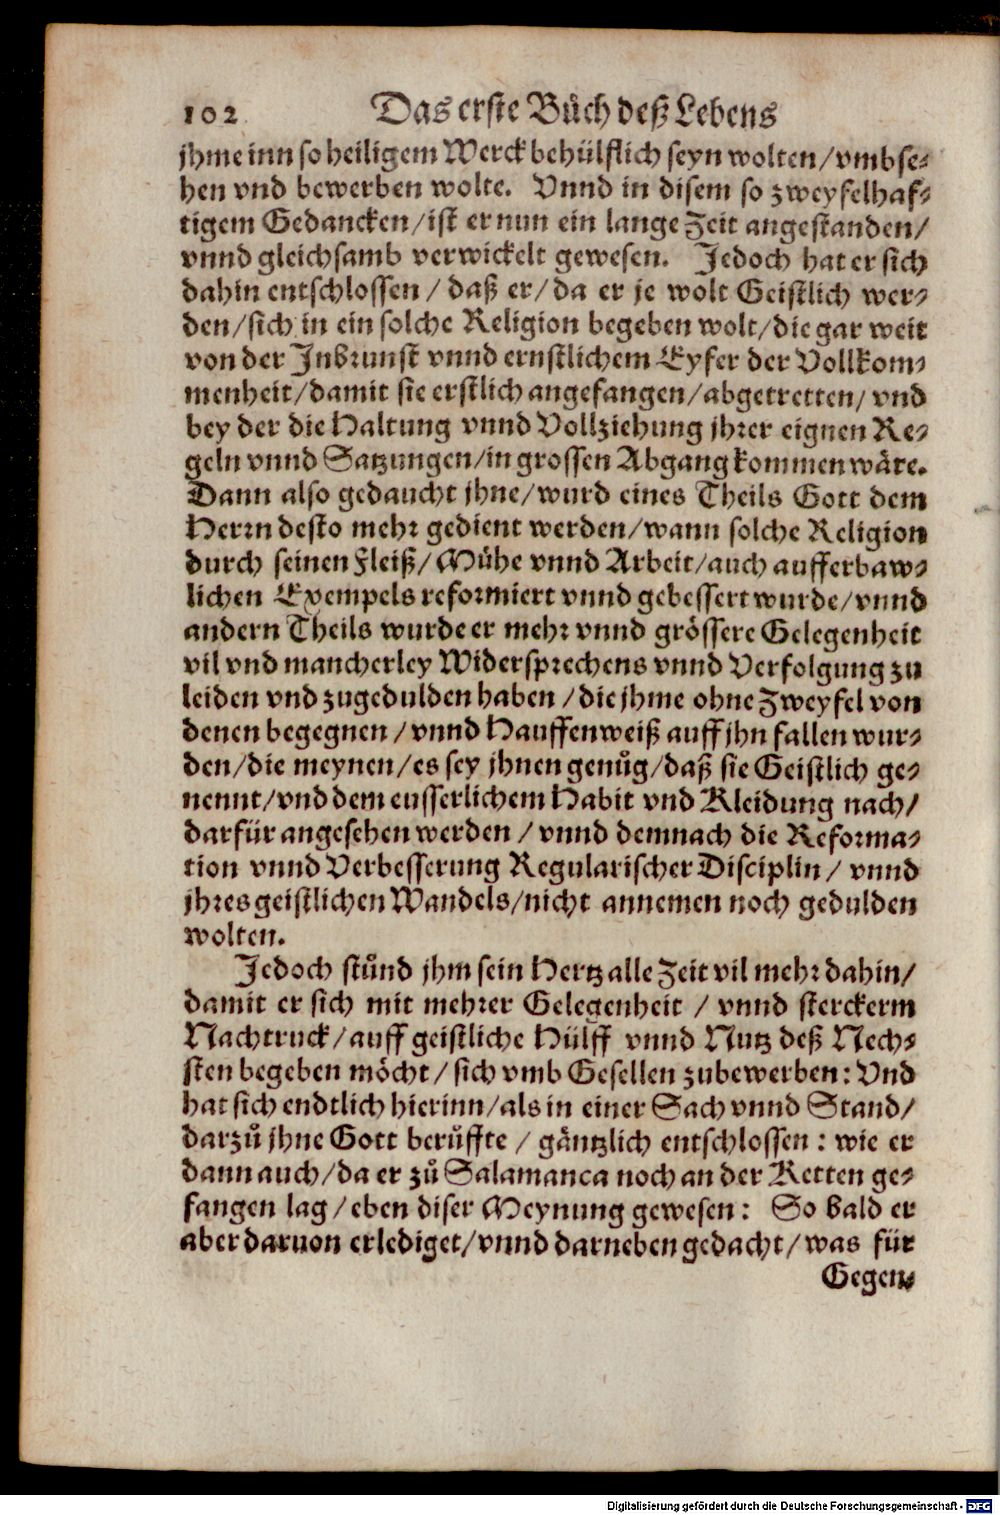 102 Das erste Bůch deß Lebens
jhme inn so heiligem Werck behülfflich seyn wolten/vmbse-
hen vnd bewerben wolte. Vnnd in disem so zweyfelhaf-
tigem Gedancken/ist er nun ein lange Zeit angestanden/
vnnd gleichsamb verwickelt gewesen. Jedoch hat er sich
dahin entschlossen/daß er/da er je wolt Geistlich wer-
den/sich in ein solche Religion begeben wolt/die gar weit
von der Jnbrunst vnnd ernstlichem Eyfer der Vollkom-
menheit/damit sie erstlich angefangen/abgetretten/vnd
bey der die Haltung vnnd Vollziehung jhrer eignen Re-
geln vnnd Satzungen/in grossen Abgang kommen wäre.
Dann also gedaucht jhne/wurd eines Theils Gott dem
Herrn desto mehr gedient werden/wann solche Religion
durch seinen Fleiß/Mühe vnnd Arbeit/auch aufferbaw-
lichen Exempels reformiert vnnd gebessert wurde/vnnd
andern Theils wurde er mehr vnnd grössere Gelegenheit
vil vnd mancherley Widersprechens vnnd Verfolgung zu
leiden vnd zugedulden haben/die jhme ohne Zweyfel von
denen begegnen/vnnd Hauffenweiß auff jhn fallen wur-
den/die meynen/es sey jhnen genůg/daß sie Geistlich ge-
nennt/vnd dem eusserlichem Habit vnd Kleidung nach/
darfür angesehen werden/vnnd demnach die Reforma-
tion vnnd Verbesserung Regularischer Disciplin/vnnd
jhres geistlichen Wandels/nicht annemen noch gedulden
wolten.
Jedoch stůnd jhm sein Hertz alle Zeit vil mehr dahin/
damit er sich mit mehrer Gelegenheit/vnnd sterckerm
Nachtruck/auff geistliche Hülff vnnd Nutz deß Nech-
sten begeben möcht/sich vmb Gesellen zubewerben: Vnd
hat sich endtlich hierinn/als in einer Sach vnnd Stand/
darzů jhne Gott berůffte/gäntzlich entschlossen: wie er
dann auch/da er zů Salamanca noch an der Ketten ge-
fangen lag/eben diser Meynung gewesen: So bald er
aber daruon erlediget/vnnd darneben gedacht/was für
Gegen-
Digitalisierung gefördert durch die Deutsche Forschungsgemeinschaft - DFG